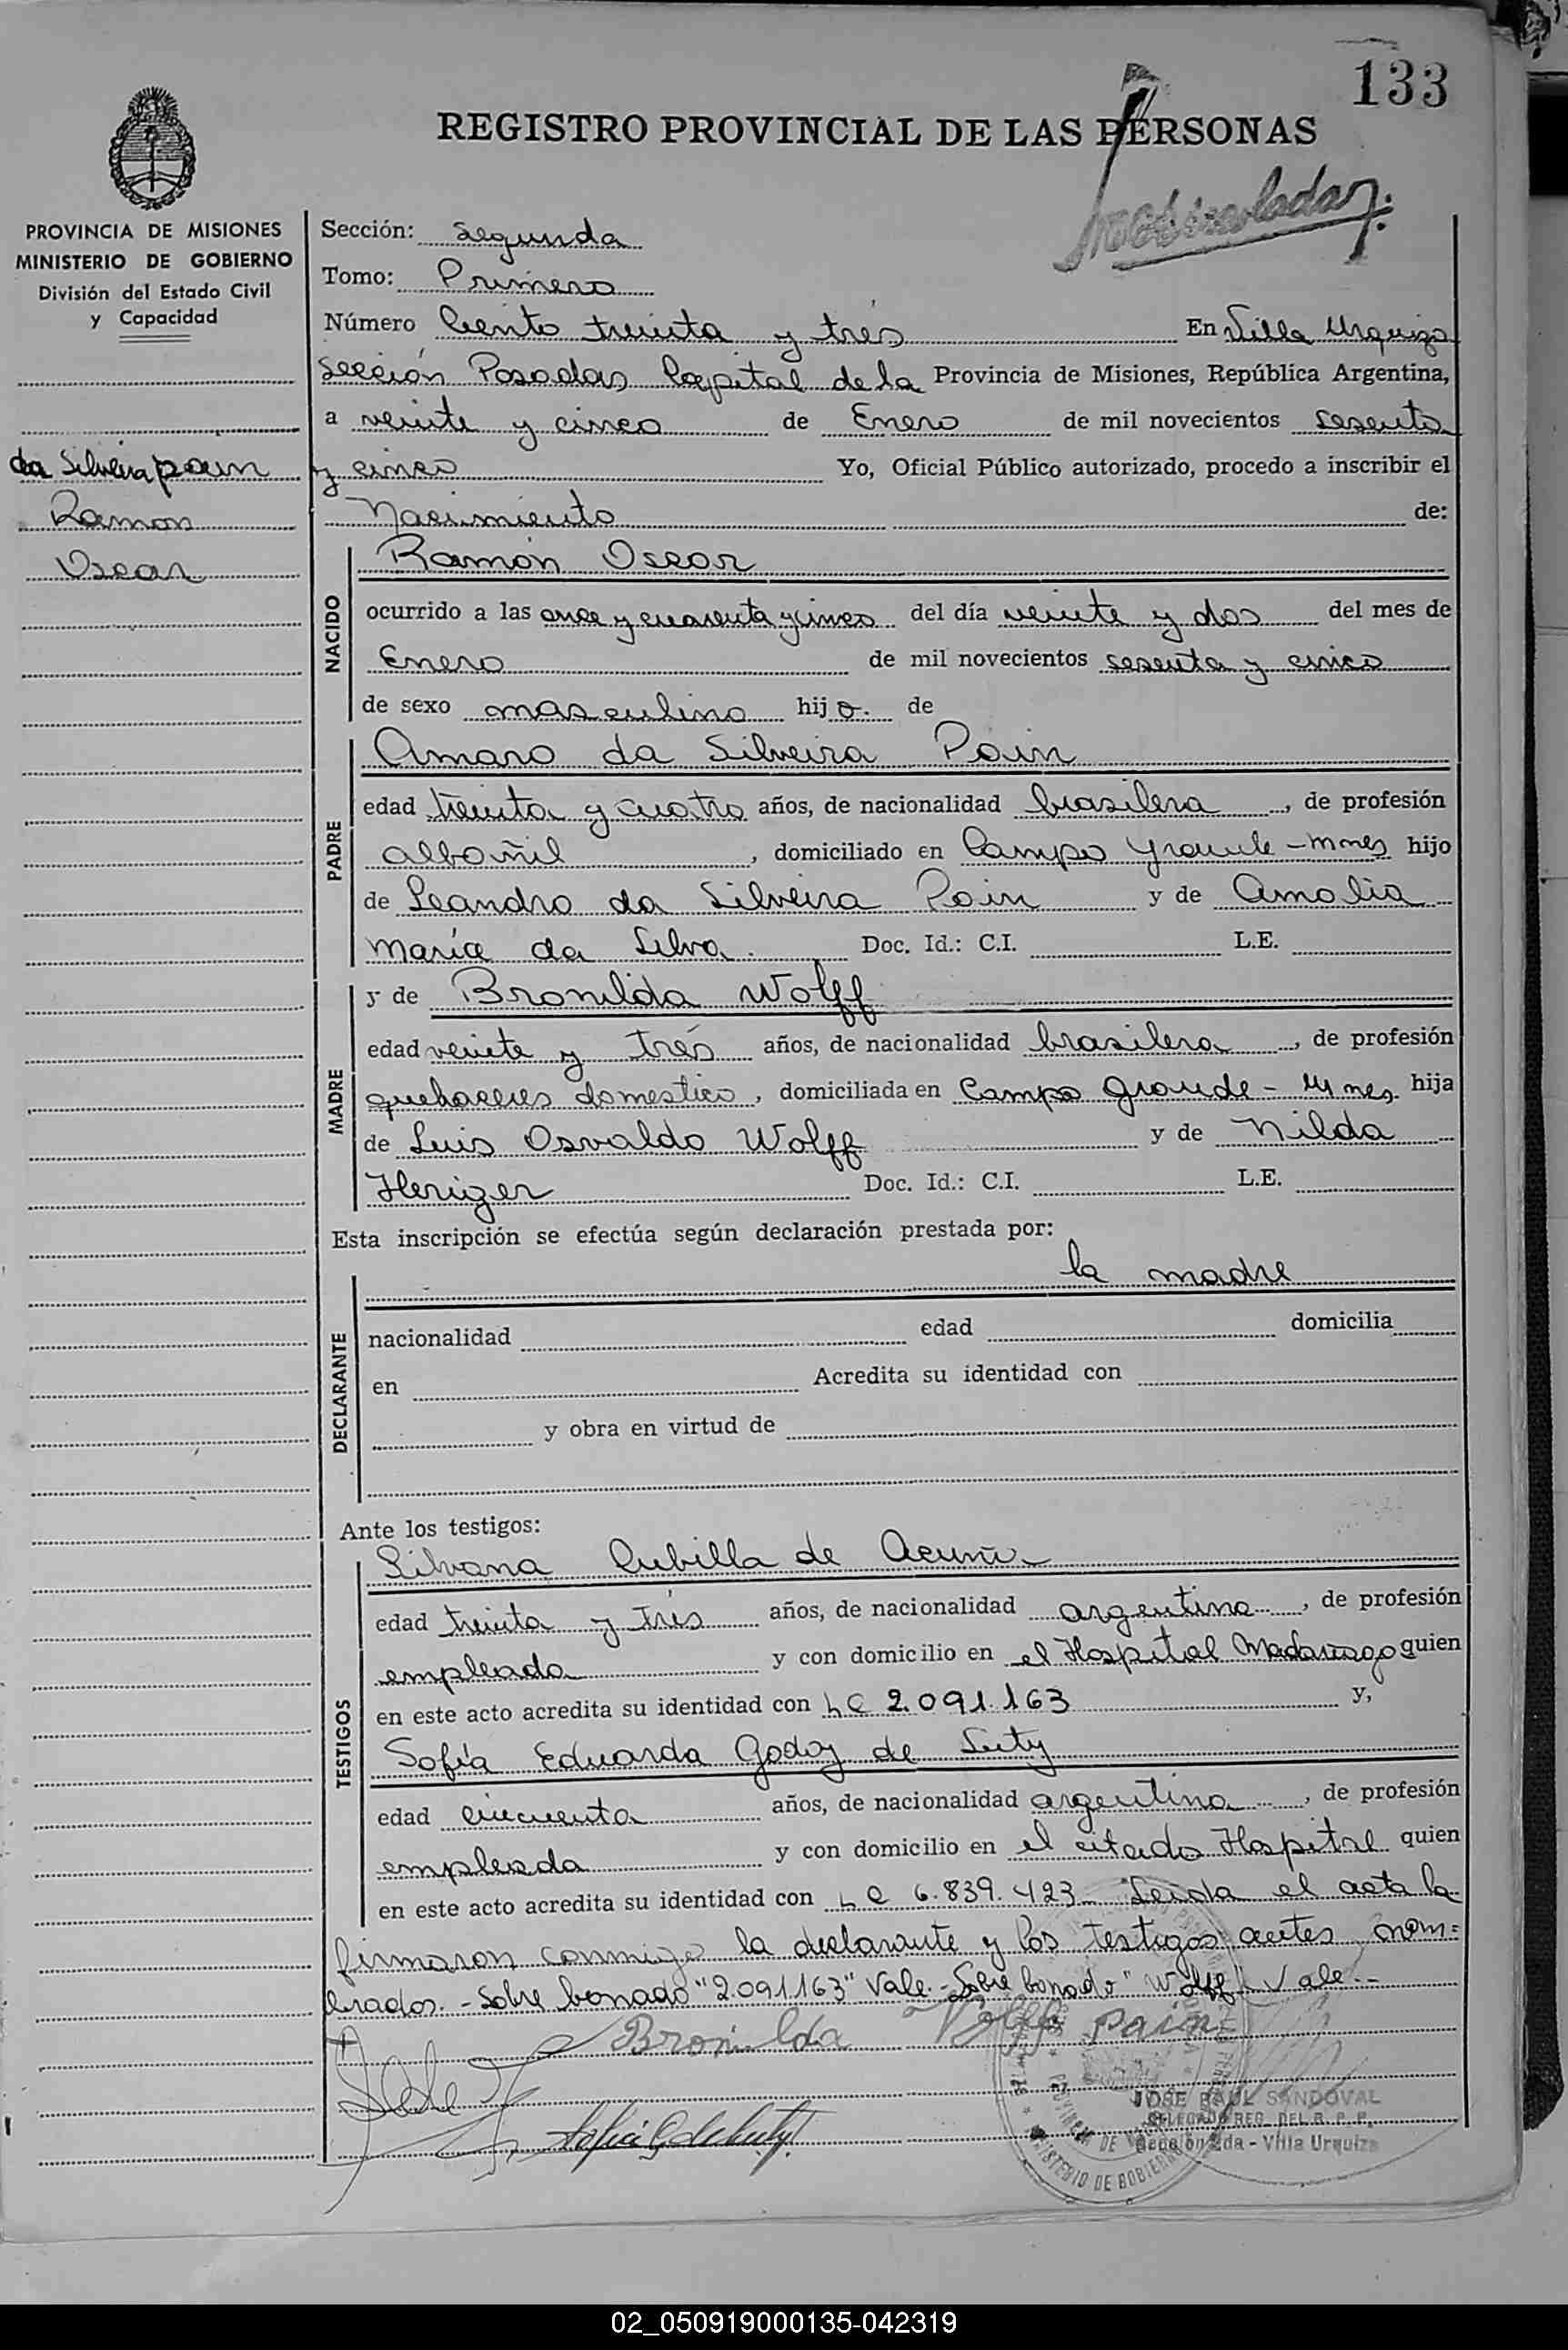 133
REGISTRO PROVINCIAL DE LAS PERSONAS
PROVINCIA DE MISIONES
MINISTERIO DE GOBIERNO
División del Estado Civil
y Capacidad
da Silveira Pain
Ramon
Oscar
Sección: Segunda
Tomo: Primero
Número Ciento treinta y trés En Villa Urquiza
Sección Posadas Capital de la Provincia de Misiones, República Argentina,
a veinte y cinco de Enero de mil novecientos sesenta
y cinco Yo, Oficial Público autorizado, procedo a inscribir el
Nacimiento de:
NACIDO
Ramón Oscar
ocurrido a las once y cuarenta y cinco del día veinte y dos del mes de
Enero de mil novecientos sesenta y cinco
de sexo masculino hijo. de
PADRE
Amaro da Silveira Pain
edad treinta y cuatro años, de nacionalidad brasilera, de profesión
albañil, domiciliado en Campo Grande - Mnes hijo
de Leandro da Silveira Pain y de Amalia
María da Silva. Doc. Id.: C.I. L.E.
MADRE
y de Bronilda Wolff
edad veinte y trés años, de nacionalidad brasilera, de profesión
quehaceres domestico, domiciliada en Campo Grande - Mnes. hija
de Luis Osvaldo Wolff y de Nilda
Herizer Doc. Id.: C.I. L.E.
Esta inscripción se efectúa según declaración prestada por:
DECLARANTE
la madre
nacionalidad edad domicilia
en Acredita su identidad con
y obra en virtud de
Ante los testigos:
TESTIGOS
Silvana Cubilla de Acuña
edad treinta y trés años, de nacionalidad argentina, de profesión
empleada y con domicilio en el Hospital Madariaga quien
en este acto acredita su identidad con LC 2.091.163 y,
Sofía Eduarda Godoy de Luty
edad cincuenta años, de nacionalidad argentina, de profesión
empleada y con domicilio en el citado Hospital quien
en este acto acredita su identidad con LC 6.839.423 Leida el acta la
firmaron conmigo la declarante y los testigos antes nom=
brados. - Sobre borrado "2.091.163" Vale. - Sobre borrado "Wolff" Vale. -
Bronilda Wolff Pain
JOSE RAUL SANDOVAL
DELEGADO REG. DEL R. P. P.
Sección 2da - Villa Urquiza
MINISTERIO DE GOBIERNO
02_050919000135-042319